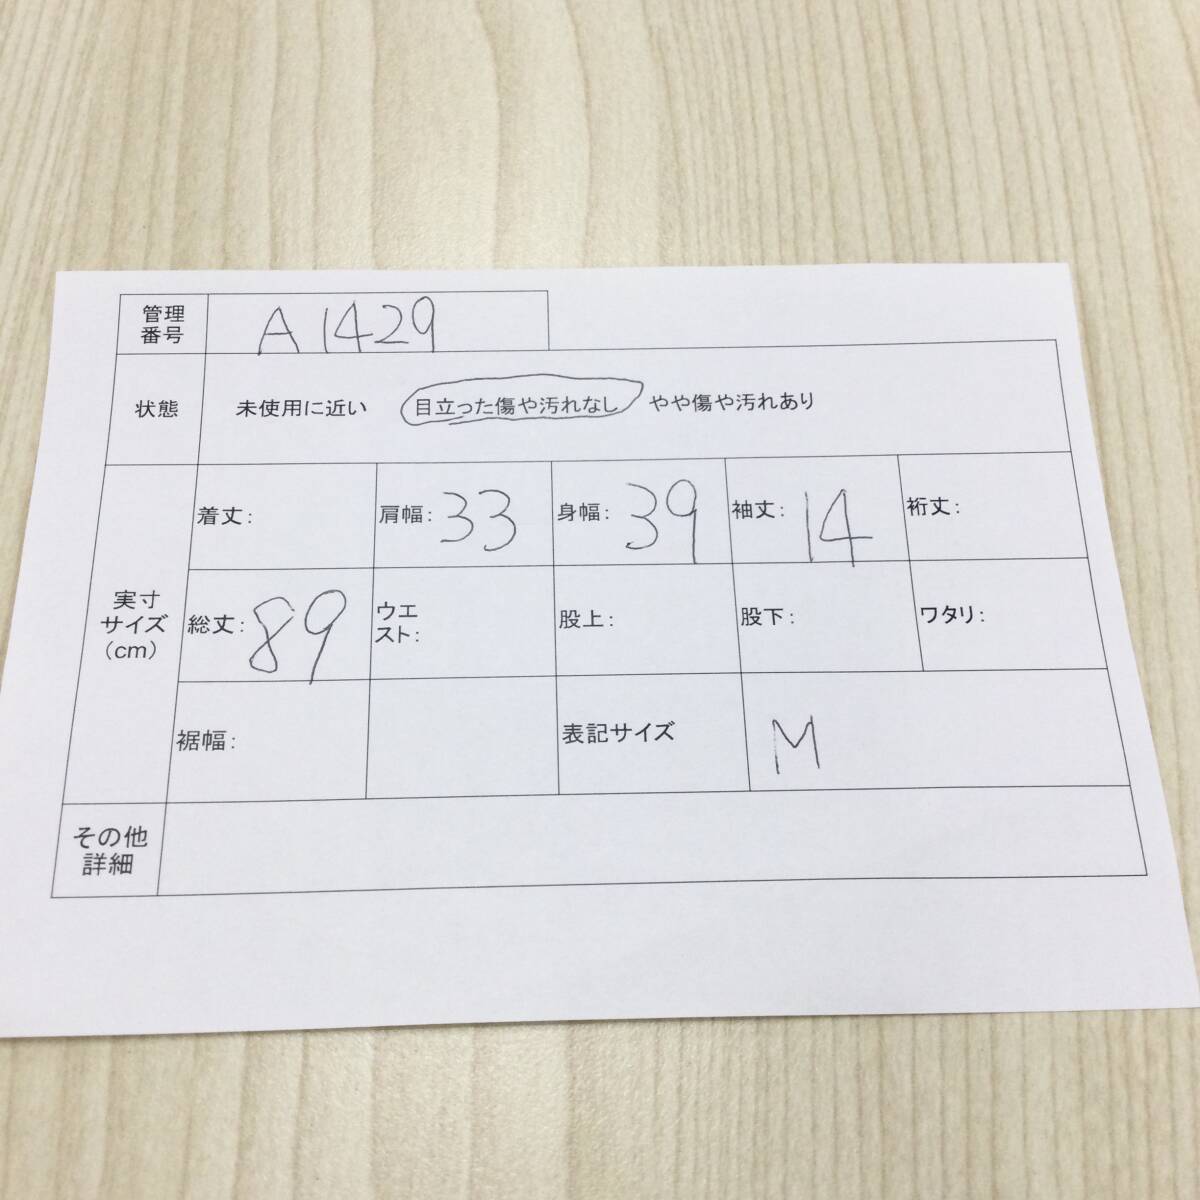 管理
番号
A1429
状態
未使用に近い 目立った傷や汚れなし やや傷や汚れあり
実寸
サイズ
(cm)
着丈: 肩幅: 33 身幅: 39 袖丈: 14 裄丈:
総丈: 89 ウエ
スト: 股上: 股下: ワタリ:
裾幅: 表記サイズ M
その他
詳細